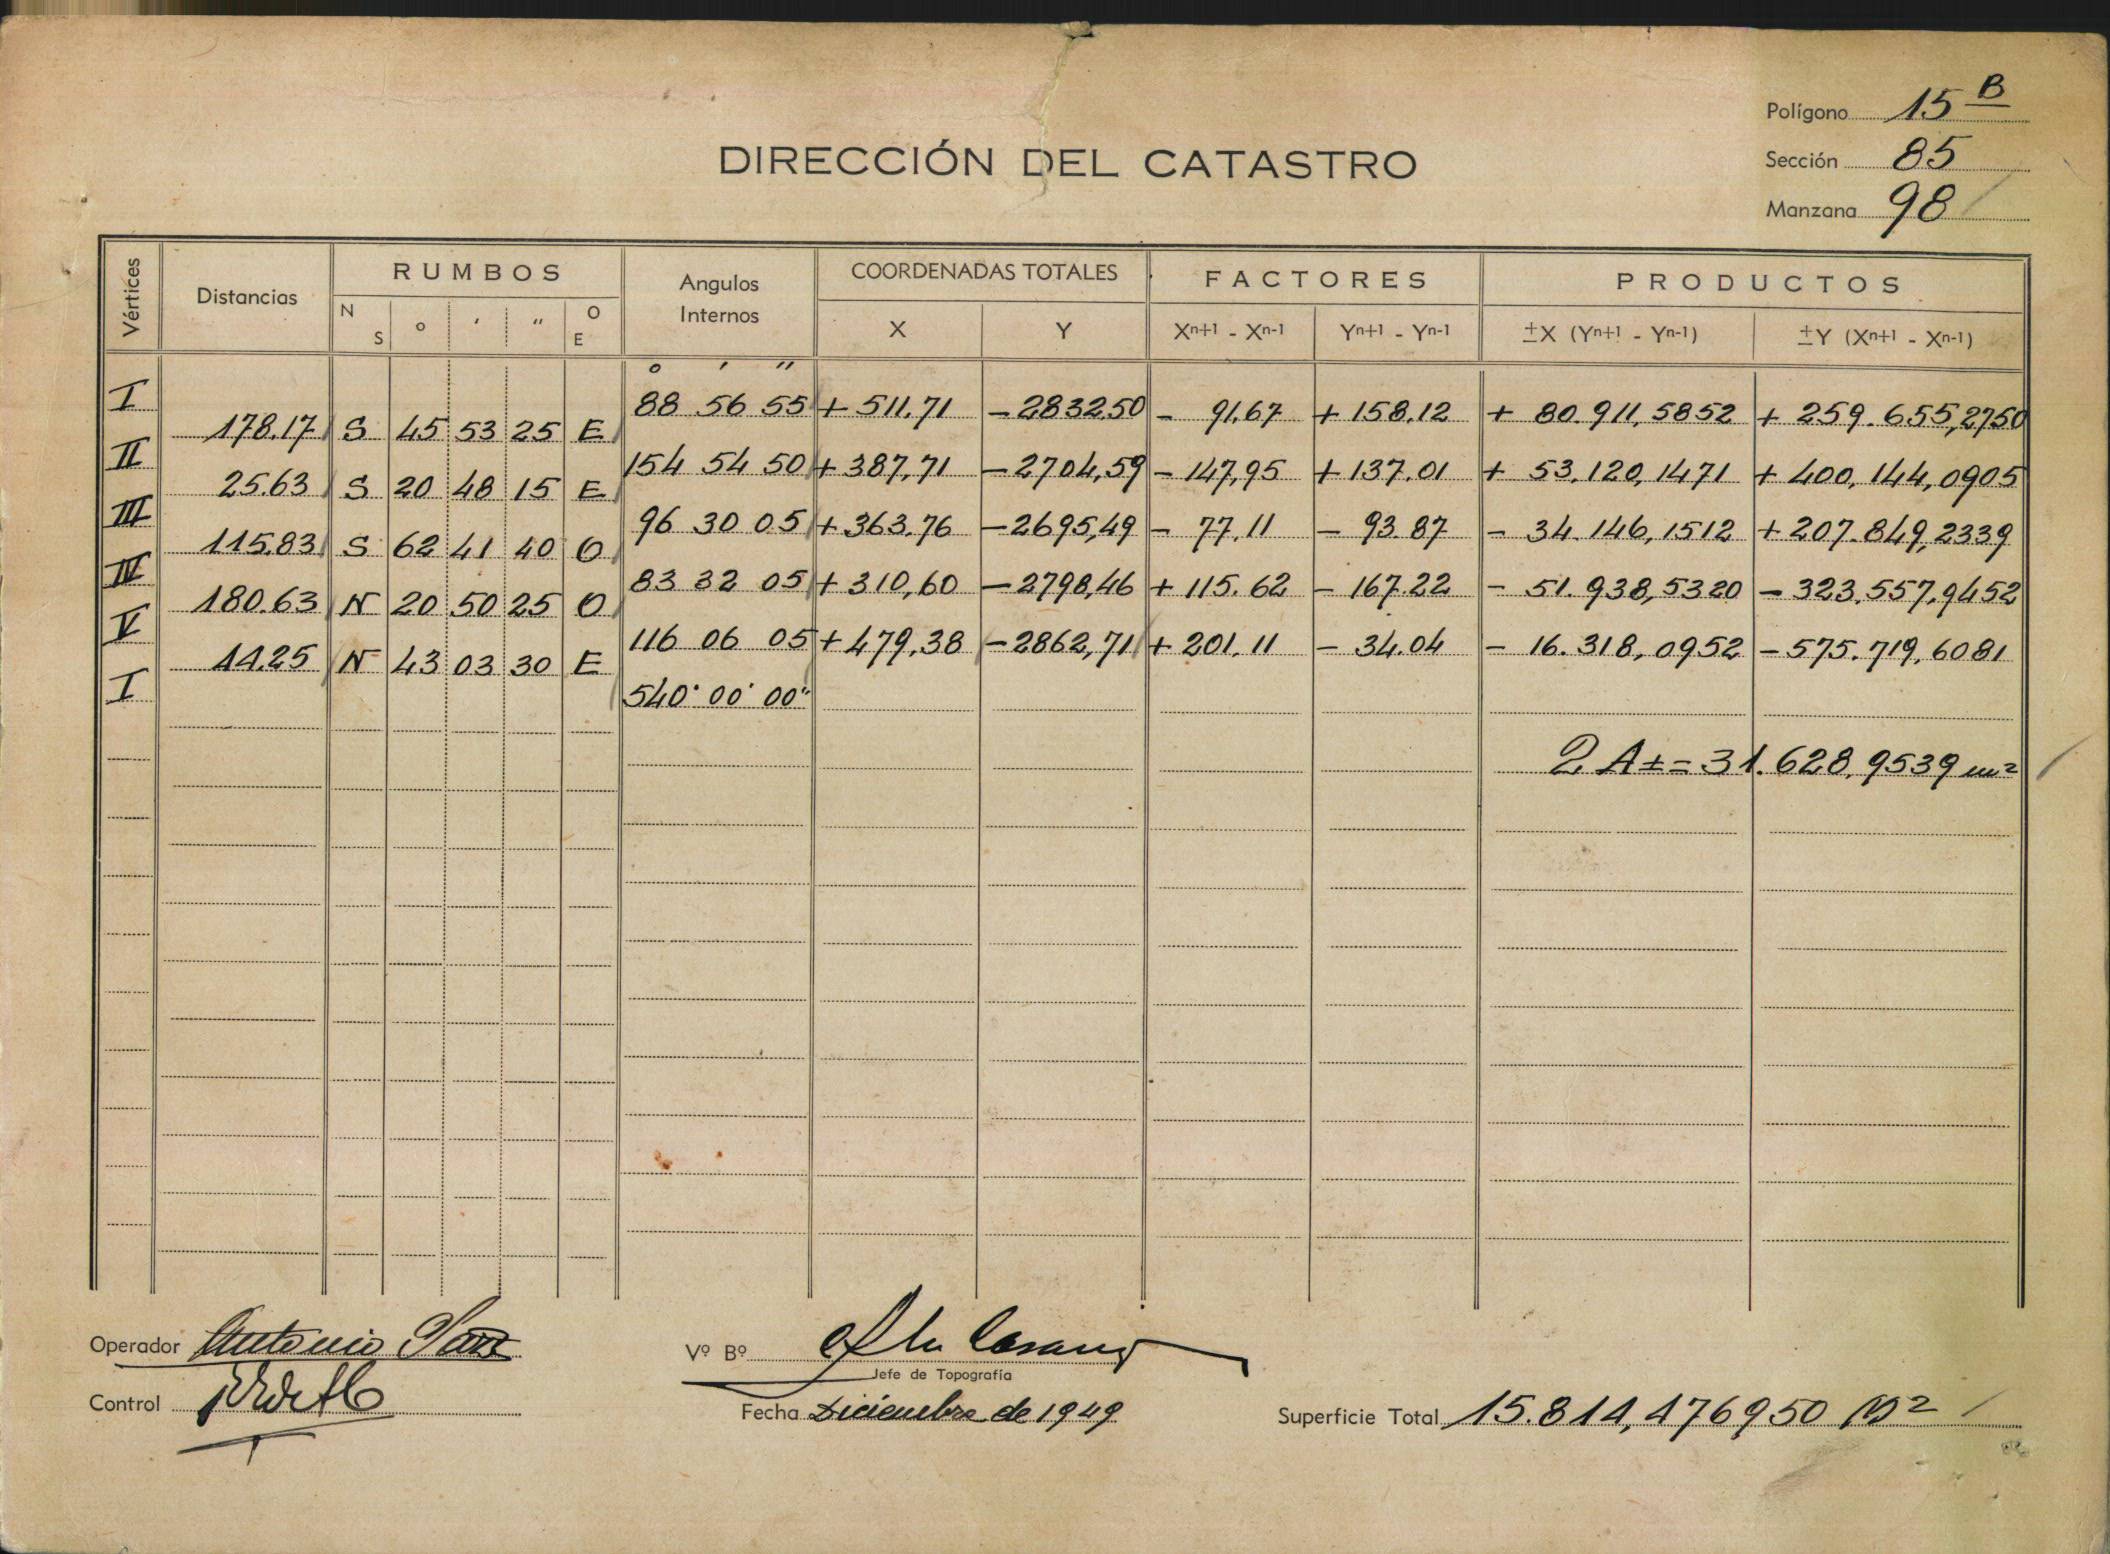 Polígono 15 B
DIRECCIÓN DEL CATASTRO
Sección 85
Manzana 98
Vértices Distancias RUMBOS Angulos Internos COORDENADAS TOTALES FACTORES PRODUCTOS
N S o ' " O E X Y Xn+1 - Xn-1 Yn+1 - Yn-1 ±X (Yn+1 - Yn-1) ±Y (Xn+1 - Xn-1)
o ' "
I 88 56 55 + 511,71 - 2832,50 - 91,67 + 158.12 + 80.911,5852 + 259.655,2750
178.17 S 45 53 25 E
II 154 54 50 + 387,71 - 2704,59 - 147,95 + 137.01 + 53.120,1471 + 400,144,0905
25.63 S 20 48 15 E
III 96 30 05 + 363.76 - 2695,49 - 77.11 - 93.87 - 34.146,1512 + 207.849,2339
115.83 S 62 41 40 O
IV 83 32 05 + 310,60 - 2798,46 + 115.62 - 167.22 - 51.938,5320 - 323.557,9452
180.63 N 20 50 25 O
V 116 06 05 + 479,38 - 2862,71 + 201.11 - 34.04 - 16.318,0952 - 575.719,6081
44.25 N 43 03 30 E
I 540° 00' 00"
2 A ± = 31.628,9539 m2
Operador Antonio
Vº Bº
Jefe de Topografía
Control
Fecha Diciembre de 1949
Superficie Total 15.814,476950 M2